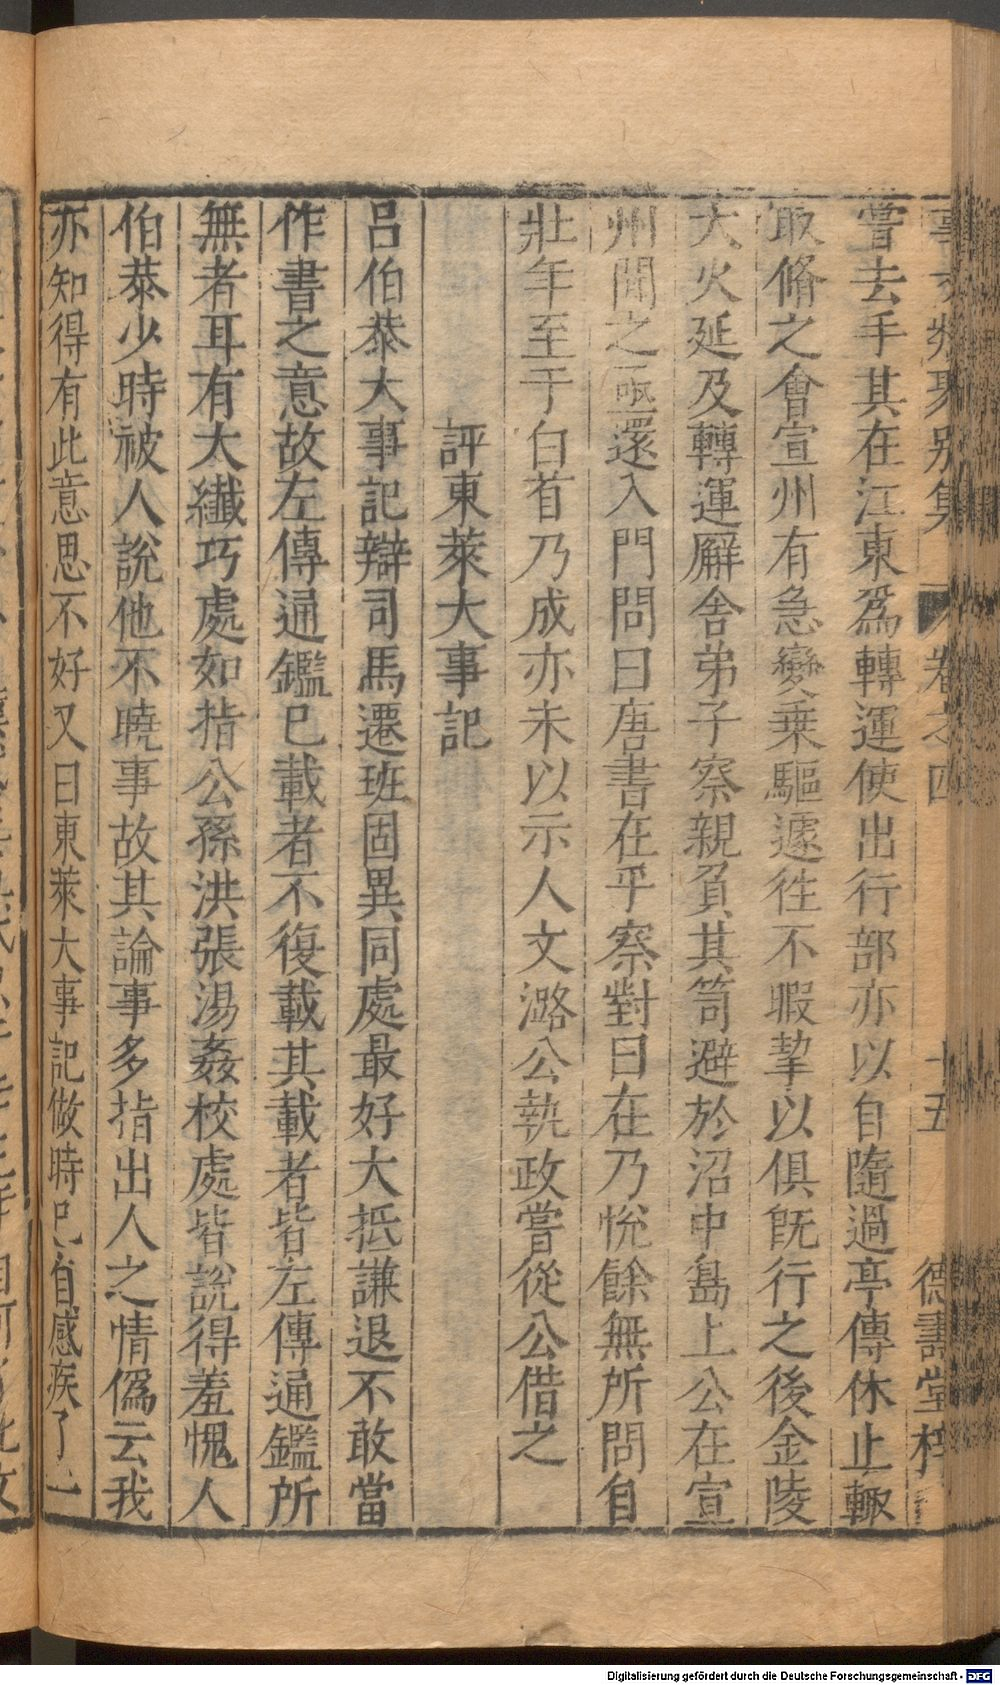 事文類聚别集 卷之四 十五 德壽堂梓
嘗去手其在江東爲轉運使出行部亦以自隨過亭傳休止輙
取脩之會宣州有急變乗驅遽徃不暇挈以俱旣行之後金陵
大火延及轉運廨舍弟子察親負其笥避於沼中島上公在宣
州聞之亟還入門問曰唐書在乎察對曰在乃悅餘無所問自
壯年至于白首乃成亦未以示人文潞公執政嘗從公借之
評東萊大事記
呂伯恭大事記辯司馬遷班固異同處最好大抵謙退不敢當
作書之意故左傳通鑑已載者不復載其載者皆左傳通鑑所
無者耳有太纎巧處如指公孫洪張湯姦校處皆說得羞愧人
伯恭少時被人說他不曉事故其論事多指出人之情僞云我
亦知得有此意思不好又曰東萊大事記做時已自感疾了一
Digitalisierung gefördert durch die Deutsche Forschungsgemeinschaft - DFG